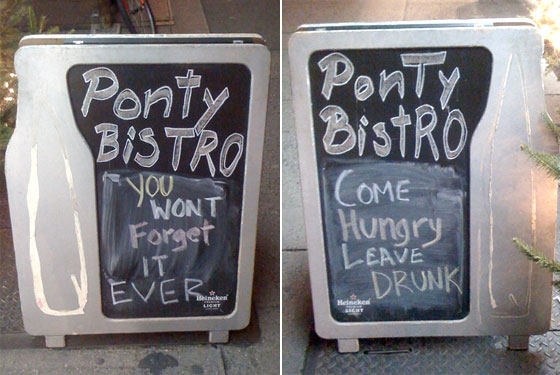 Ponty
BiSTRO
YOU
WONT
Forget
IT
EVER
Heineken
PREMIUM
LIGHT
PonTy
BistRO
COME
Hungry
LEAVE
DRUNK
Heineken
PREMIUM
LIGHT